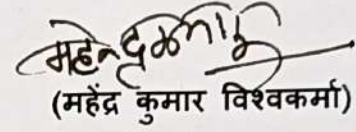 महेन्द्र कुमार
(महेंद्र कुमार विश्वकर्मा)